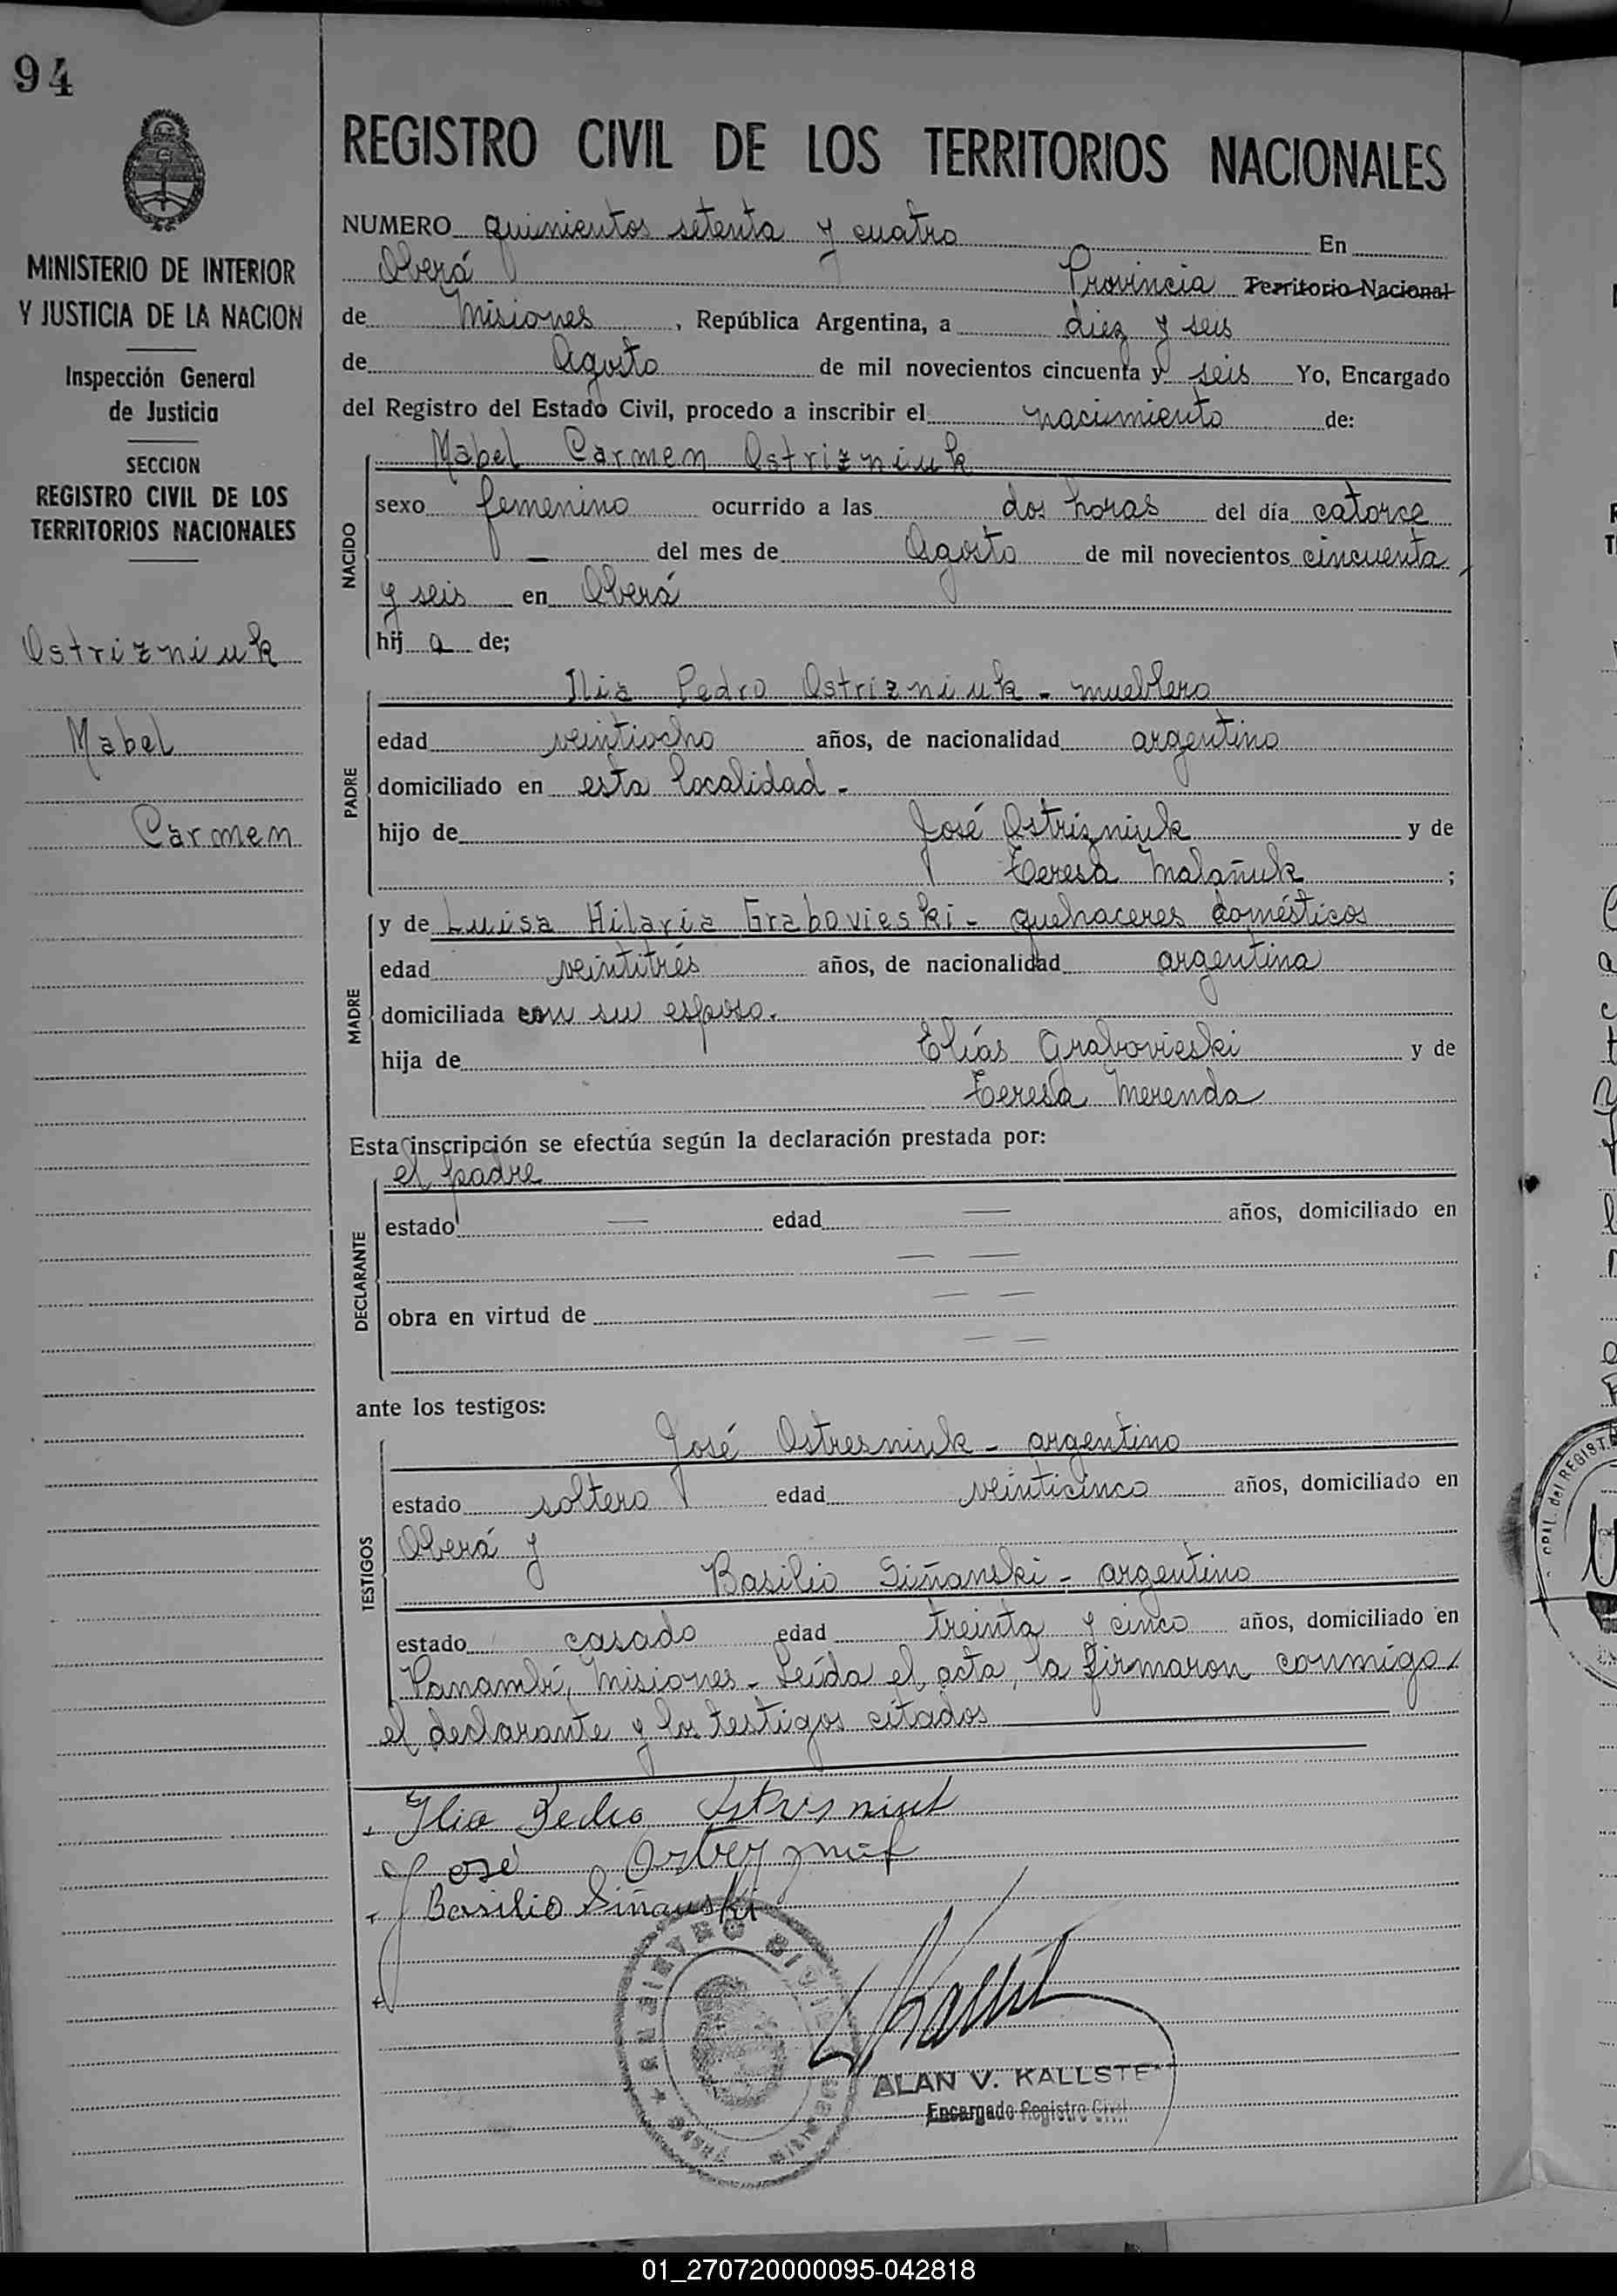 94
MINISTERIO DE INTERIOR
Y JUSTICIA DE LA NACION
Inspección General
de Justicia
SECCION
REGISTRO CIVIL DE LOS
TERRITORIOS NACIONALES
Ostrizniuk
Mabel
Carmen
REGISTRO CIVIL DE LOS TERRITORIOS NACIONALES
NUMERO quinientos setenta y cuatro En
Oberá Provincia Territorio Nacional
de Misiones, República Argentina, a diez y seis
de Agosto de mil novecientos cincuenta y seis Yo, Encargado
del Registro del Estado Civil, procedo a inscribir el nacimiento de:
NACIDO
Mabel Carmen Ostrizniuk
sexo femenino ocurrido a las dos horas del día catorce
— del mes de Agosto de mil novecientos cincuenta
y seis en Oberá
hij a de;
PADRE
Ilia Pedro Ostrizniuk - mueblero
edad veintiocho años, de nacionalidad argentino
domiciliado en esta localidad -
hijo de José Ostrizniuk y de
Teresa Malañuk ;
MADRE
y de Luisa Hilaria Grabovieski - quehaceres domésticos
edad veintitrés años, de nacionalidad argentina
domiciliada con su esposo.
hija de Elías Grabovieski y de
Teresa Merenda
Esta inscripción se efectúa según la declaración prestada por:
DECLARANTE
el padre
estado — edad — años, domiciliado en
— —
obra en virtud de — —
— —
ante los testigos:
TESTIGOS
José Ostresniuk - argentino
estado soltero edad veinticinco años, domiciliado en
Oberá y
Basilio Siñanski - argentino
estado casado edad treinta y cinco años, domiciliado en
Panambí, Misiones - Leída el acta, la firmaron conmigo
el declarante y los testigos citados
Ilia Pedro
José
Basilio Siñanski
REGISTRO CIVIL
ALAN V. KALLSTE
Encargado Registro Civil
01_270720000095-042818